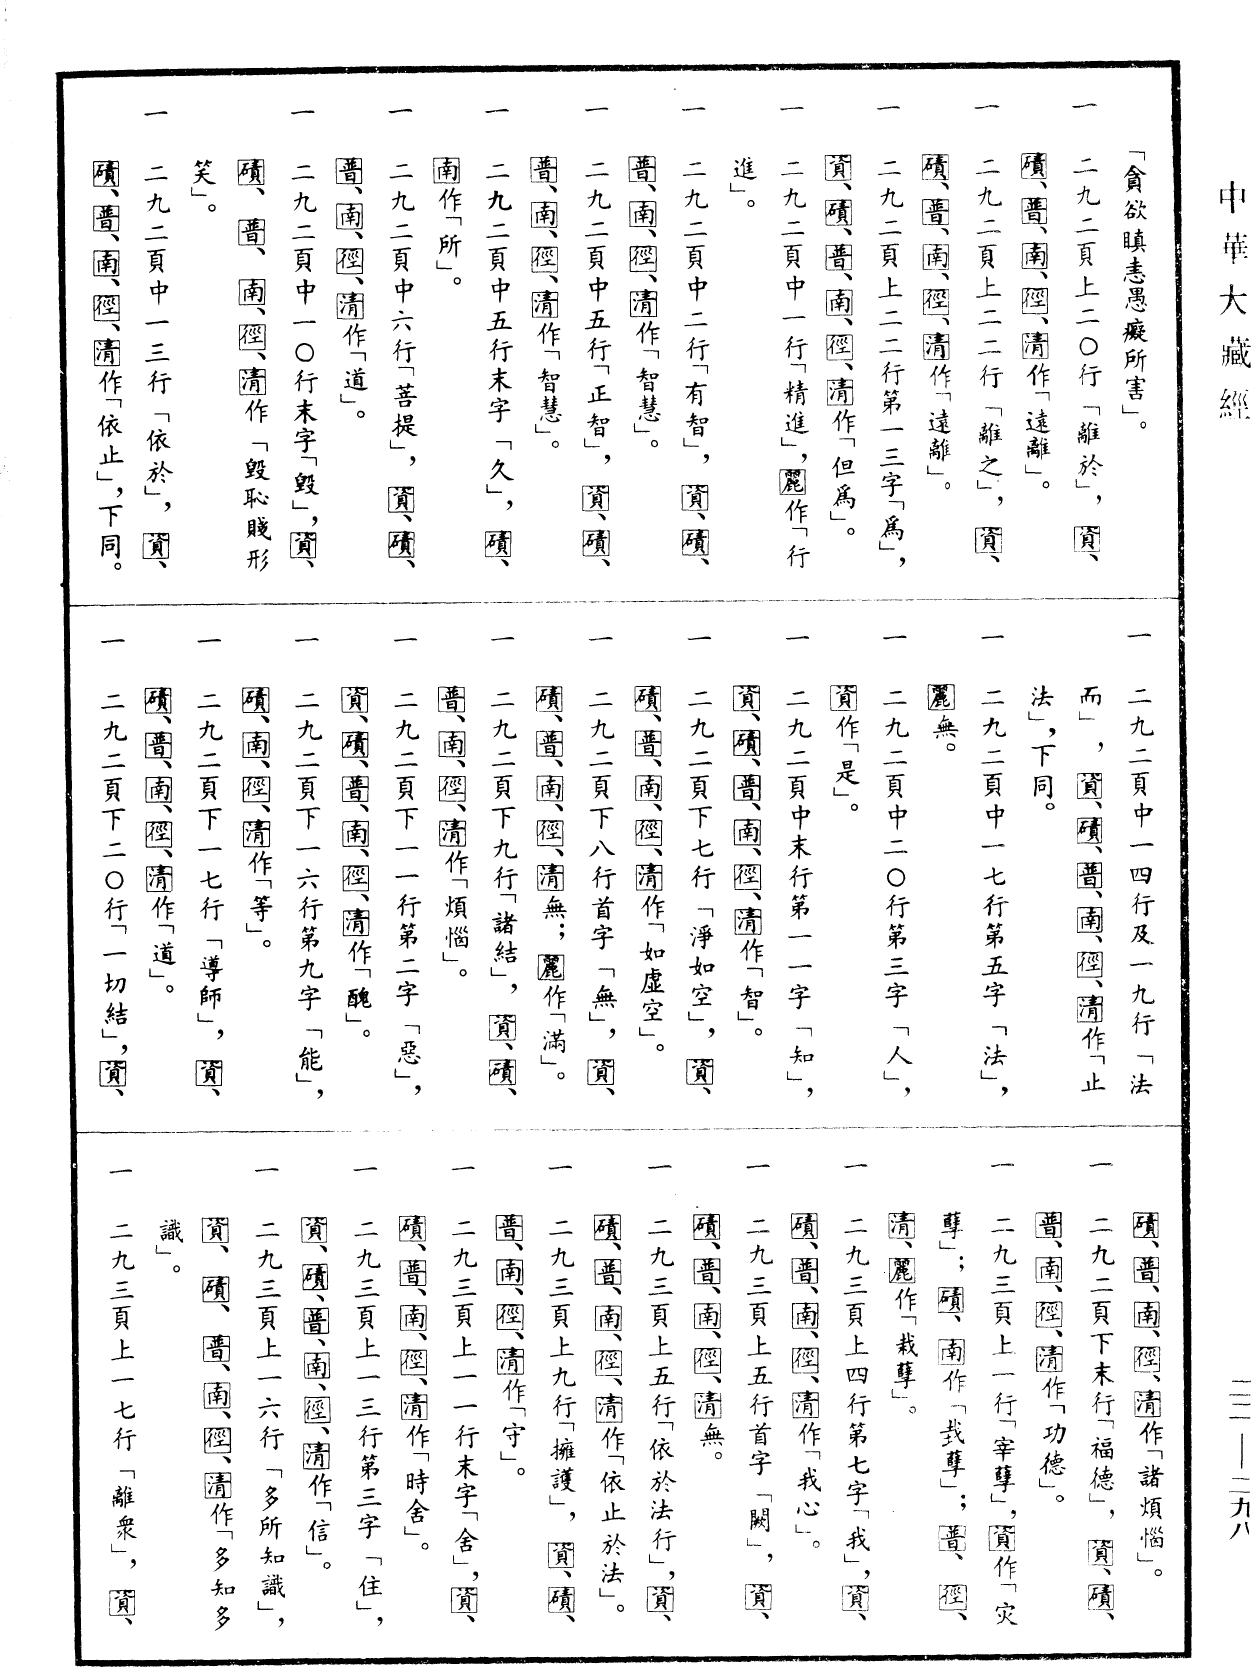 中華大藏經
「貪欲瞋恚愚癡所害」。
一　二九二頁上二〇行「離於」，資、
磧、普、南、徑、清作「遠離」。
一　二九二頁上二二行「離之」，資、
磧、普、南、徑、清作「遠離」。
一　二九二頁上二二行第一三字「爲」，
資、磧、普、南、徑、清作「但爲」。
一　二九二頁中一行「精進」，麗作「行
進」。
一　二九二頁中二行「有智」，資、磧、
普、南、徑、清作「智慧」。
一　二九二頁中五行「正智」，資、磧、
普、南、徑、清作「智慧」。
一　二九二頁中五行末字「久」，磧、
南作「所」。
一　二九二頁中六行「菩提」，資、磧、
普、南、徑、清作「道」。
一　二九二頁中一〇行末字「毀」，資、
磧、普、南、徑、清作「毀恥賤形
笑」。
一　二九二頁中一三行「依於」，資、
磧、普、南、徑、清作「依止」，下同。
一　二九二頁中一四行及一九行「法
而」，資、磧、普、南、徑、清作「止
法」，下同。
一　二九二頁中一七行第五字「法」，
麗無。
一　二九二頁中二〇行第三字「人」，
資作「是」。
一　二九二頁中末行第一一字「知」，
資、磧、普、南、徑、清作「智」。
一　二九二頁下七行「淨如空」，資、
磧、普、南、徑、清作「如虛空」。
一　二九二頁下八行首字「無」，資、
磧、普、南、徑、清無；麗作「滿」。
一　二九二頁下九行「諸結」，資、磧、
普、南、徑、清作「煩惱」。
一　二九二頁下一一行第二字「惡」，
資、磧、普、南、徑、清作「醜」。
一　二九二頁下一六行第九字「能」，
磧、南、徑、清作「等」。
一　二九二頁下一七行「導師」，資、
磧、普、南、徑、清作「道」。
一　二九二頁下二〇行「一切結」，資、
磧、普、南、徑、清作「諸煩惱」。
一　二九二頁下末行「福德」，資、磧、
普、南、徑、清作「功德」。
一　二九三頁上一行「宰孽」，資作「灾
孽」；磧、南作「㦲孽」；普、徑、
清、麗作「栽孽」。
一　二九三頁上四行第七字「我」，資、
磧、普、南、徑、清作「我心」。
一　二九三頁上五行首字「闕」，資、
磧、普、南、徑、清無。
一　二九三頁上五行「依於法行」，資、
磧、普、南、徑、清作「依止於法」。
一　二九三頁上九行「擁護」，資、磧、
普、南、徑、清作「守」。
一　二九三頁上一一行末字「舍」，資、
磧、普、南、徑、清作「時舍」。
一　二九三頁上一三行第三字「住」，
資、磧、普、南、徑、清作「信」。
一　二九三頁上一六行「多所知識」，
資、磧、普、南、徑、清作「多知多
識」。
一　二九三頁上一七行「離衆」，資、
二二——二九八